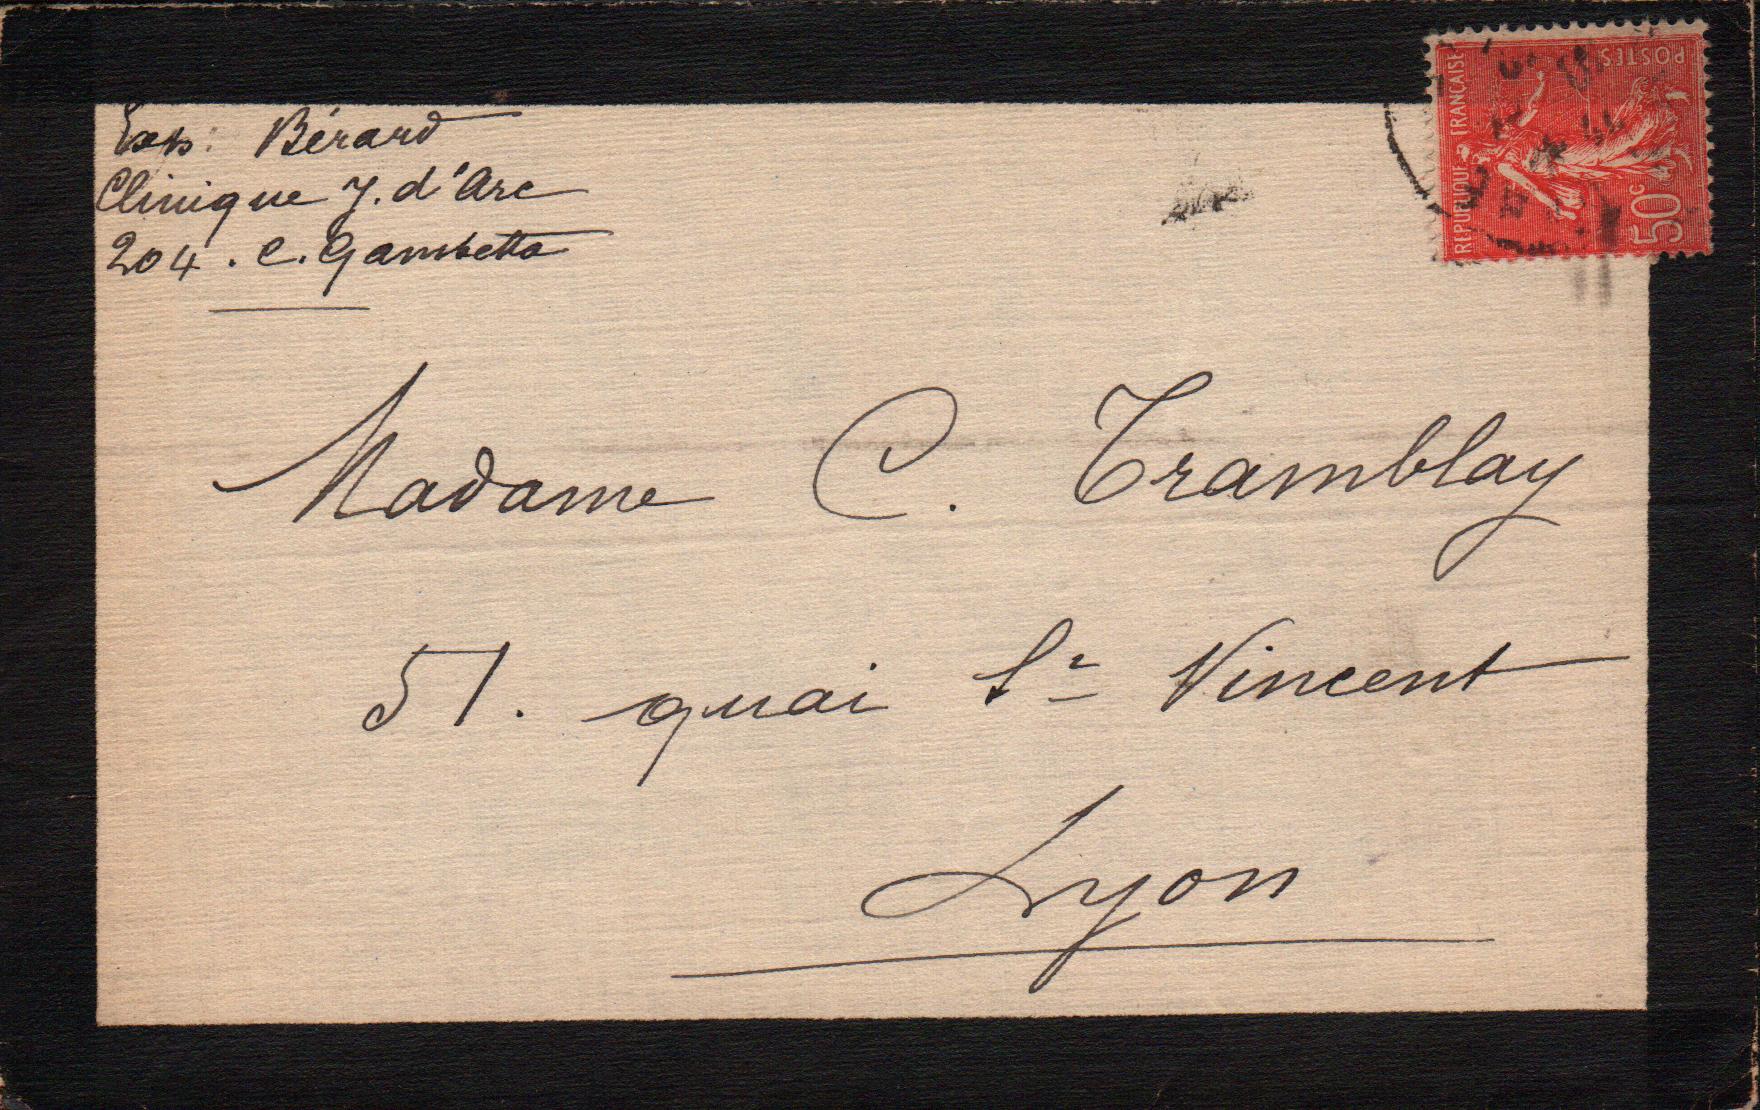 Exp: Bérard
Clinique J. d'Arc
204. C. Gambetta
REPUBLIQUE FRANÇAISE
POSTES
50c
Madame C. Tramblay
51. quai St Vincent
Lyon